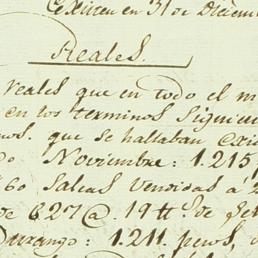 en 31 de Diciem
Reales.
reales que en todo el m
en los terminos siguien
que se hallaban exis
Noviembre: 1.215
60 Salcas Vendidas a 2
de 627 @. 19 tt.s de
Durango: 1.211. pesos,